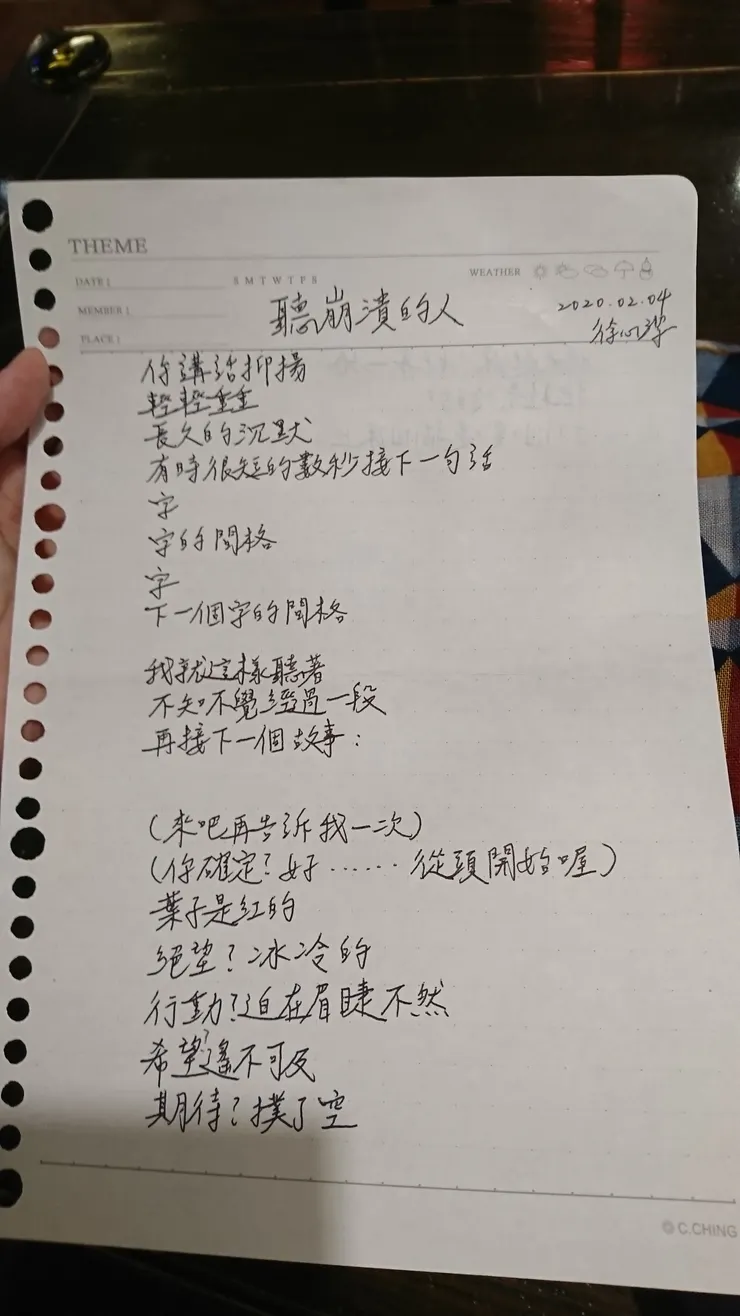 THEME
DATE
S M T W T F S
WEATHER
MEMBER
PLACE
聽崩潰的人
2020.02.04
徐心潔
你講話抑揚
輕輕重重
長久的沉默
有時很短的數秒接下一句話
字
字的間格
字
下一個字的間格
我就這樣聽著
不知不覺經過一段
再接下一個故事：
（來吧再告訴我一次）
（你確定？好⋯⋯從頭開始喔）
葉子是紅的
絕望？冰冷的
行動？迫在眉睫不然
希望？遙不可及
期待？撲了空
C.CHING